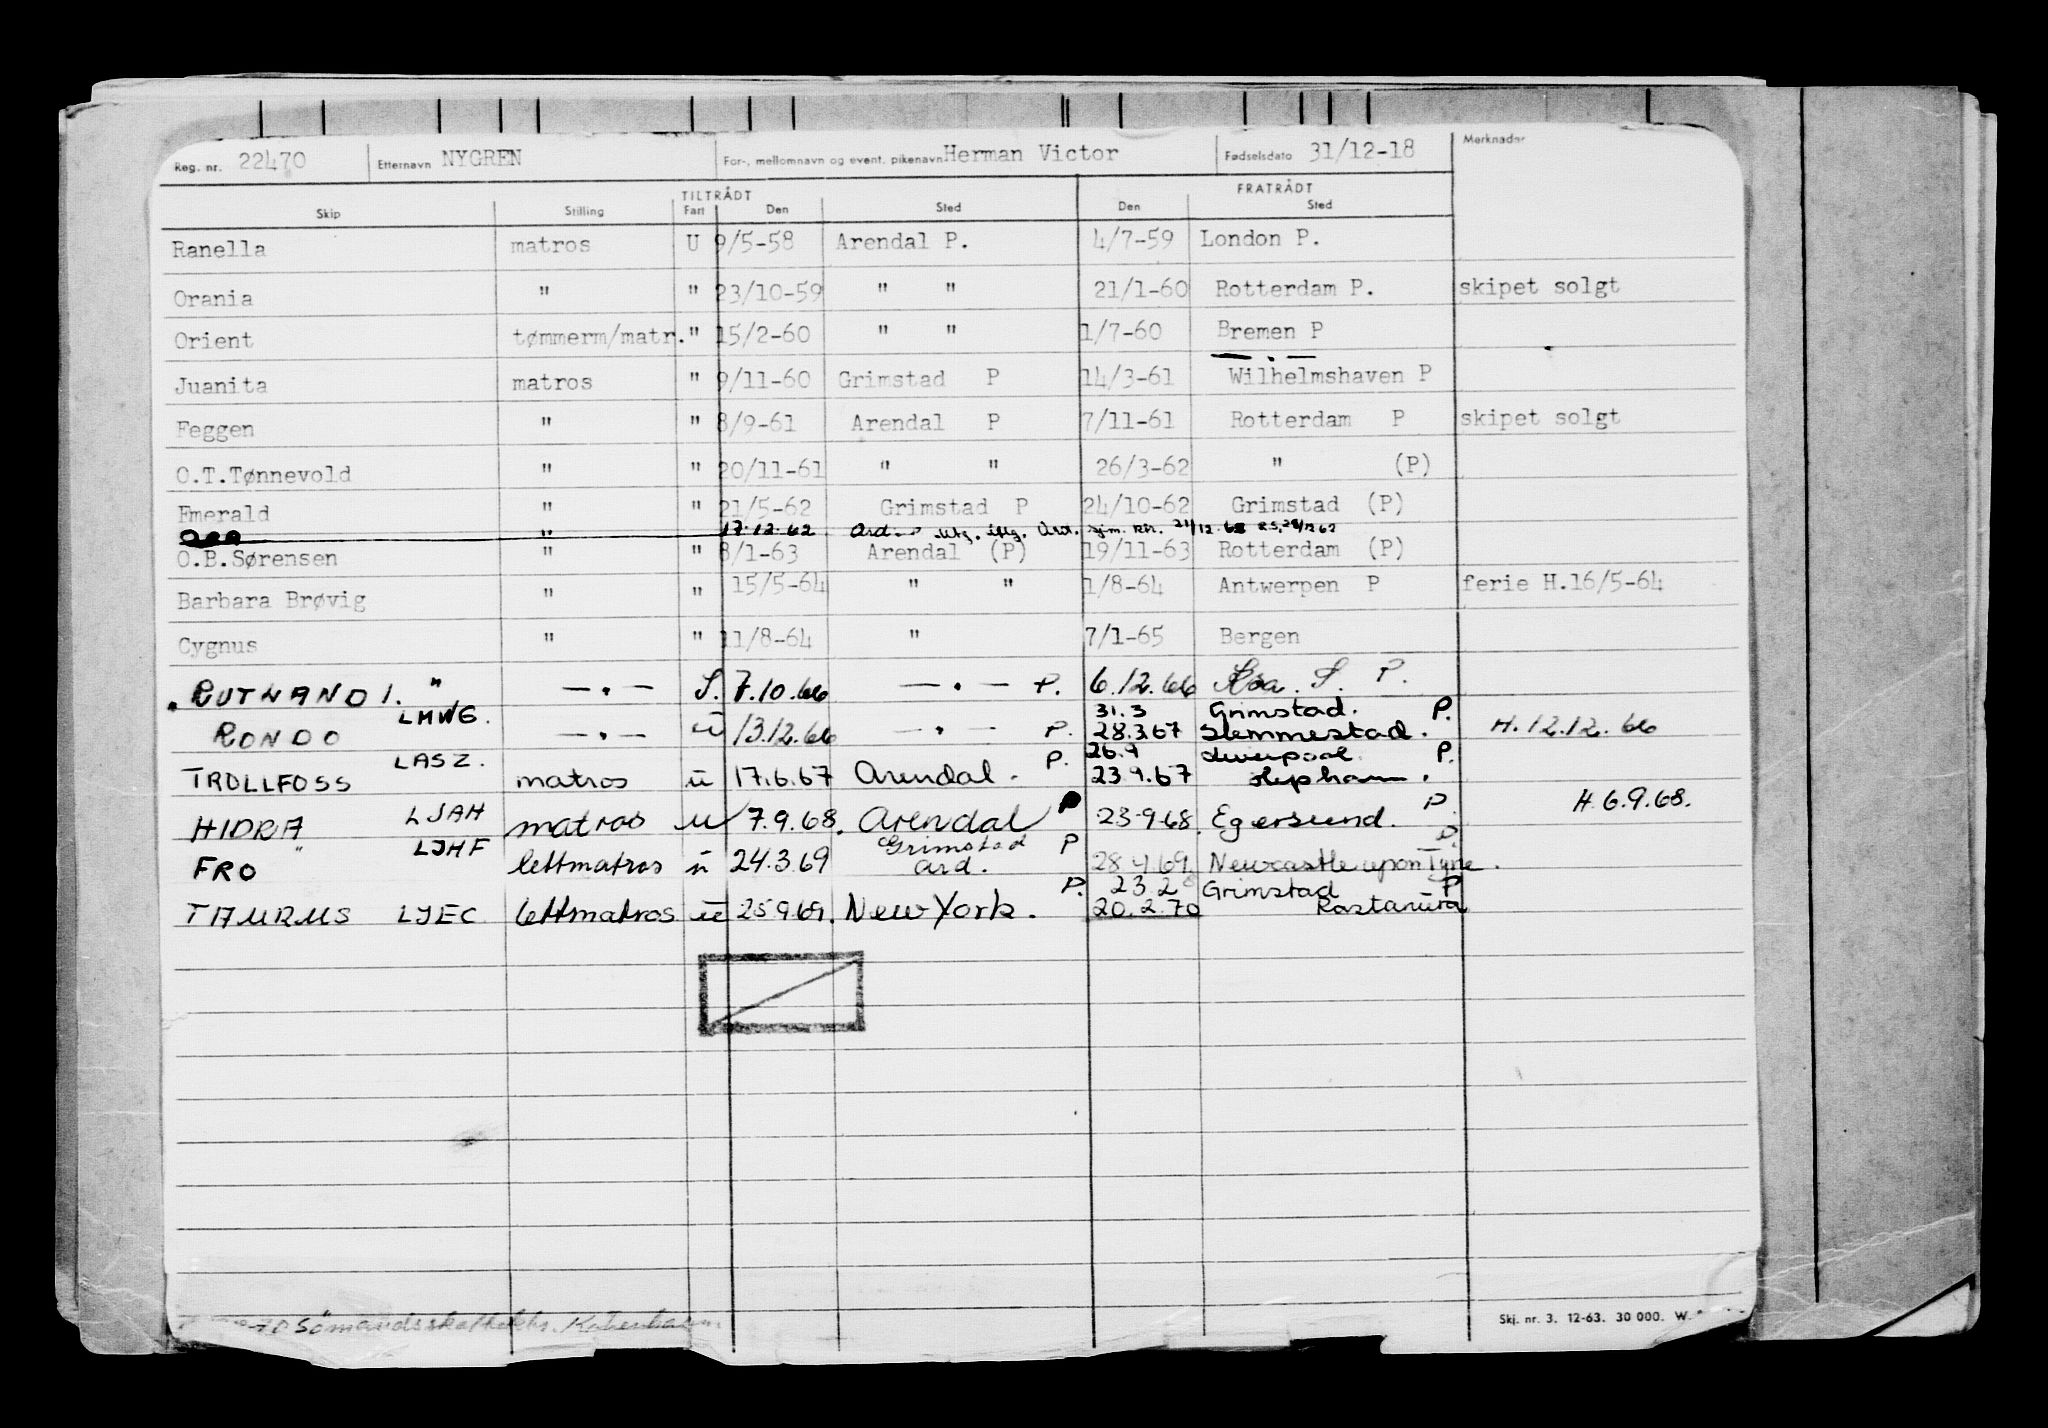 Reg. nr. 22470 Etternavn NYGREN For-, mellomnavn og event. pikenavn Herman Victor Fødselsdato 31/12-18 Merknader
TILTRÅDT FRATRÅDT
Skip Stilling Fart Den Sted Den Sted
Ranella matros U 9/5-58 Arendal P. 4/7-59 London P.
Orania " " 23/10-59 " " 21/1-60 Rotterdam P. skipet solgt
Orient tømmerm/matr. " 15/2-60 " " 1/7-60 Bremen P
Juanita matros " 9/11-60 Grimstad P 14/3-61 Wilhelmshaven P
Feggen " " 8/9-61 Arendal P 7/11-61 Rotterdam P skipet solgt
O.T.Tønnevold " " 20/11-61 " " 26/3-62 " (P)
Emerald " " 21/5-62 Grimstad P 24/10-62 Grimstad (P)
" 17.12.62 Ard.
O.B.Sørensen " " 8/1-63 Arendal (P) 19/11-63 Rotterdam (P)
Barbara Brøvig " " 15/5-64 " " 1/8-64 Antwerpen P ferie H.16/5-64
Cygnus " " 11/8-64 " 7/1-65 Bergen
RUTHAND I. " — . — S. 7.10.66 — . — P. 6.12.66 S. P.
LMWG. 31.3 Grimstad. P.
RONDO — . — u 13.12.66 — . — P. 28.3.67 Slemmestad. H.12.12.66
LASZ. P. 26.9 Liverpool. P.
TROLLFOSS matros u 17.6.67 Arendal. 23.9.67
HIDRA LJAH matros u 7.9.68. Arendal P 23.9.68. Egersund. P. H.6.9.68.
LJHF Grimstad P P
FRO " lettmatros u 24.3.69 Ard. 28.4.69. Newcastle upon Tyne.
P. 23.2 Grimstad P
TAURUS LJEC lettmatros u 25.9.69. New York. 20.2.70 Rastanura
Skj. nr. 3. 12-63. 30 000. W.